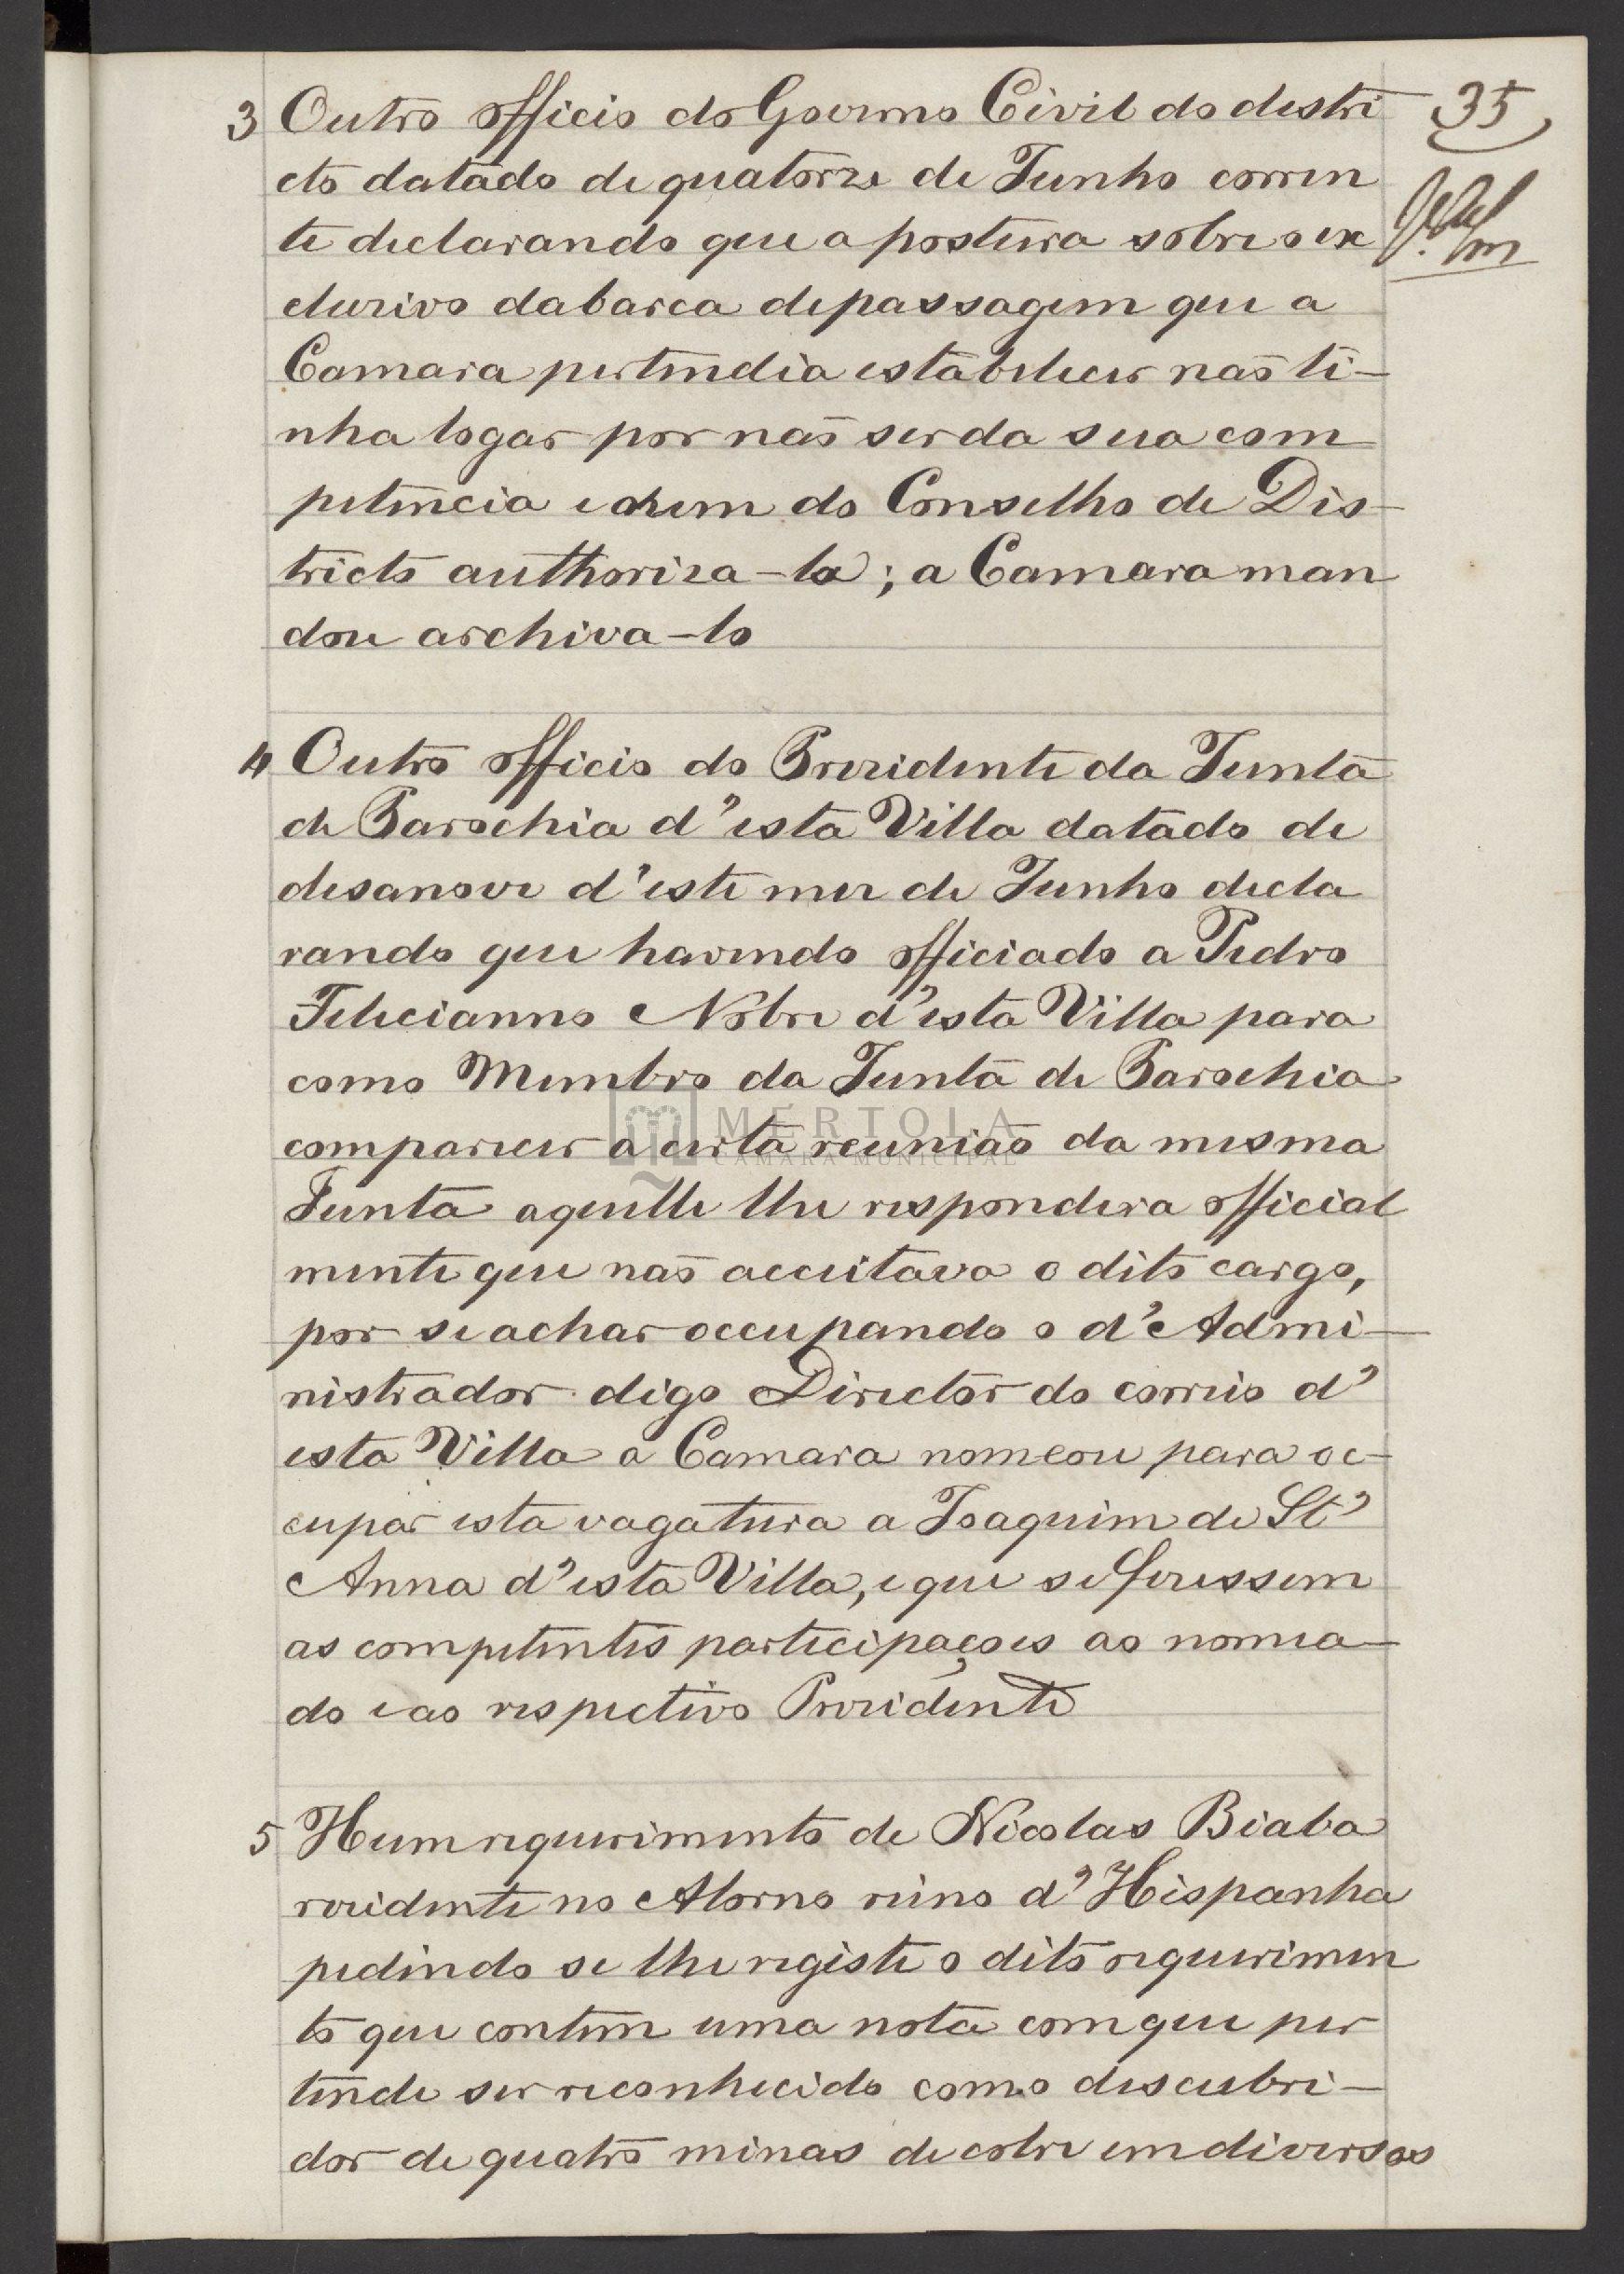 35
3 Outro officio do Governo Civil do destri
cto datado de quatorze de Junho corren
te declarando que a postura sobre o ex
clusivo da barca de passagem que a
Camara pertendia estabelecer não ti-
nha logar por não ser da sua com
petencia e nem do Conselho de Dis-
tricto authoriza-la; a Camara man
dou archiva-lo
4 Outro officio do Prezidente da Junta
de Parochia d'esta Villa datado de
desanove d'este mez de Junho decla
rando que havendo officiado a Pedro
Felecianno Nobre d'esta Villa para
como Membro da Junta de Parochia
comparecer a certa reunião da mesma
Junta aquelle lhe respondera official
mente que não acceitava o dito cargo,
por se achar occupando o d'Admi-
nistrador digo Director do correio d'
esta Villa a Camara nomeou para oc-
cupar esta vagatura a Joaquim de St'
Anna d'esta Villa, e que se fizessem
as competentes participações ao nomea-
do e ao respectivo Prezidente
5 Hum requerimento de Nicolas Biaba
rezidente no Alorno reino d'Hispanha
pedindo se lhe registe o dito requerimen
to que contem uma nota com que per
tende ser reconhecido como descubri-
dor de quatro minas de cobre em diversos
MERTOLA
CAMARA MUNICIPAL